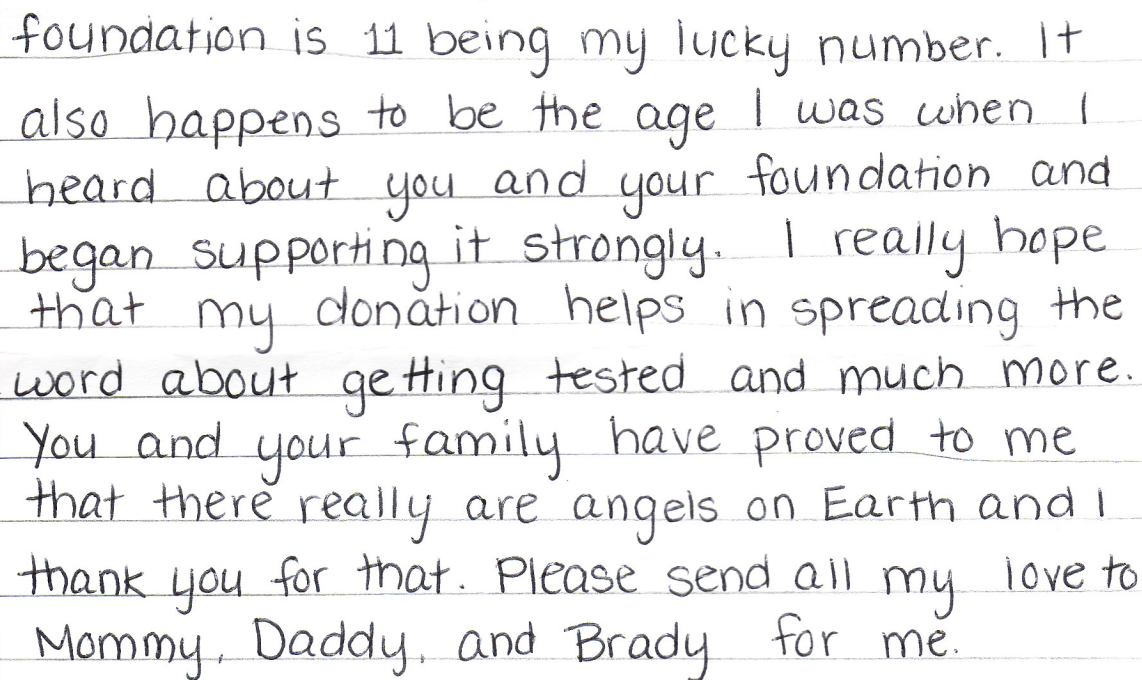 foundation is 11 being my lucky number. It
also happens to be the age I was when I
heard about you and your foundation and
began supporting it strongly. I really hope
that my donation helps in spreading the
word about getting tested and much more.
You and your family have proved to me
that there really are angels on Earth and I
thank you for that. Please send all my love to
Mommy, Daddy, and Brady for me.